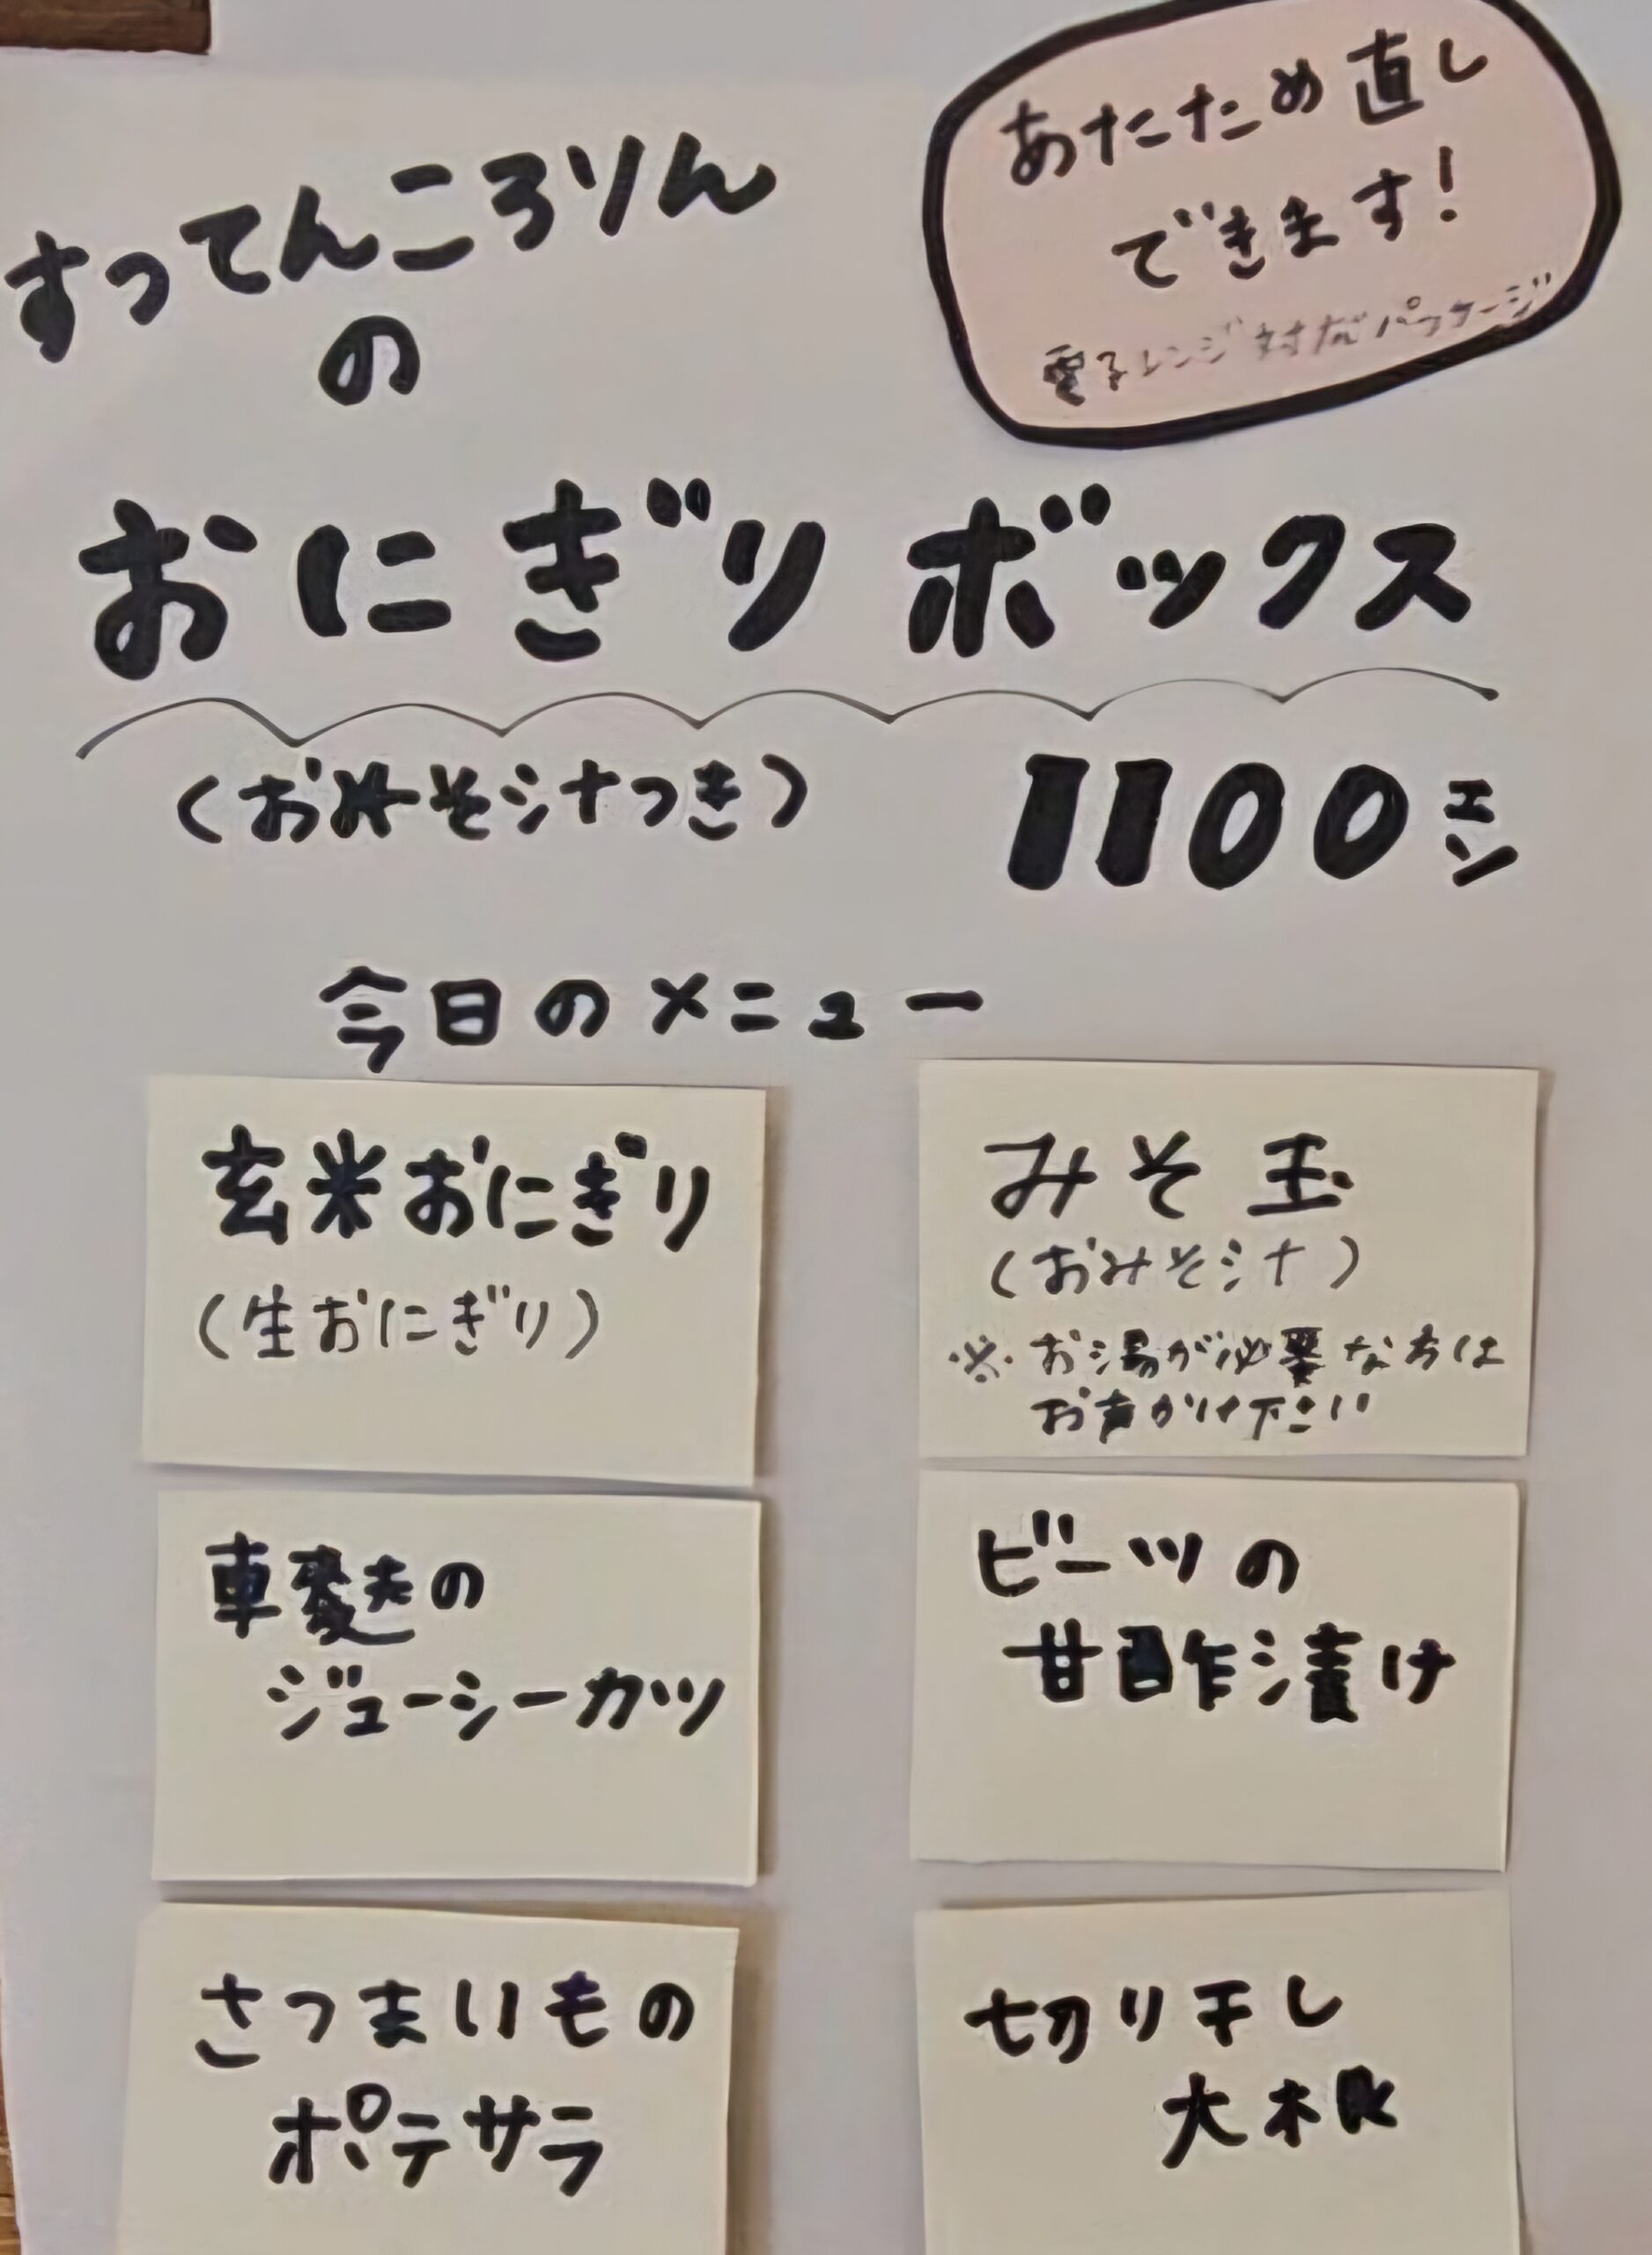 すってんころりん
の
あたため直し
できます!
電子レンジ対応パッケージ
おにぎりボックス
(おみそ汁つき)
1100エン
今日のメニュー
玄米おにぎり
(生おにぎり)
みそ玉
(おみそ汁)
※お湯が必要な方は
お声がけ下さい
車麩の
ジューシーカツ
ビーツの
甘酢漬け
さつまいもの
ポテサラ
切り干し
大根